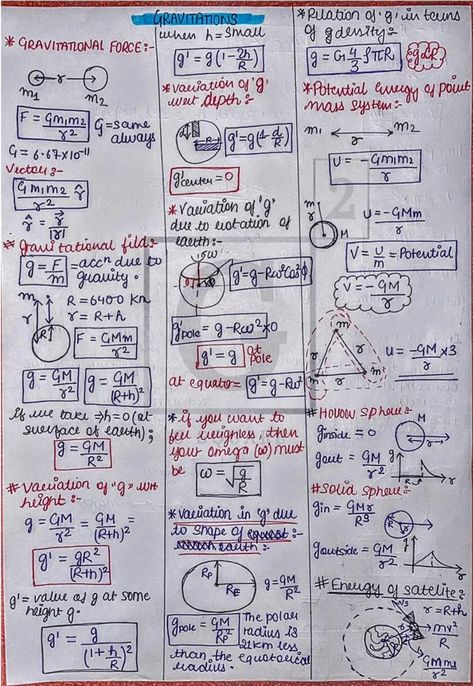 GRAVITATIONS
* GRAVITATIONAL FORCE:-
r
m1 m2
F = Gm1m2/r²
G = same always
G = 6.67×10⁻¹¹
Vector:-
Gm1m2/r² r̂
r̂ = r⃗/|r|
* Gravitational fild:-
g = F/m - accⁿ due to gravity.
m
r
R
R = 6400 Km
r = R+h
F = GMm/r²
g = GM/r²
g = GM/(R+h)²
If we take h=0 (at
surface of earth);
g = GM/R²
# Variation of "g" wrt
height:-
g = GM/r² = GM/(R+h)²
g' = gR²/(R+h)²
g' = value of g at some
height g.
g' = g/(1+h/R)²
when h = small
g' = g(1-2h/R)
* Variation of 'g'
wrt depth:-
g' = g(1-d/R)
g'center = 0
* Variation of 'g'
due to rotation of
earth:-
g' = g-Rω²cos²ϕ
g'pole = g-Rω²×0
g' = g at pole
at equator = g' = g-Rω²
* if you want to
feel weighless, then
your omega (ω) must
be ω = √g/R
* Variation in 'g' due
to shape of
earth:-
RP
RE
g = GM/R²
gpole = GM/Rp²
The polar
radius is
21km less
than the equatorical
radius.
* Relation of 'g' in terms
of g density:-
g = G 4/3 ρπR
g∝R
* Potential energy of point
mass system:-
m1 r m2
U = -Gm1m2/r
m
r
M
U = -GMm/r
V = U/m = Potential
V = -GM/r
m
r r
m r m
U = -GM/r ×3
# Hollow sphere:-
M
ginside = 0
gout = GM/r²
# Solid sphere:-
gin = GMr/R³
goutside = GM/r²
# Energy of satelite:-
r = R+h
mv²/R
GMm/r²